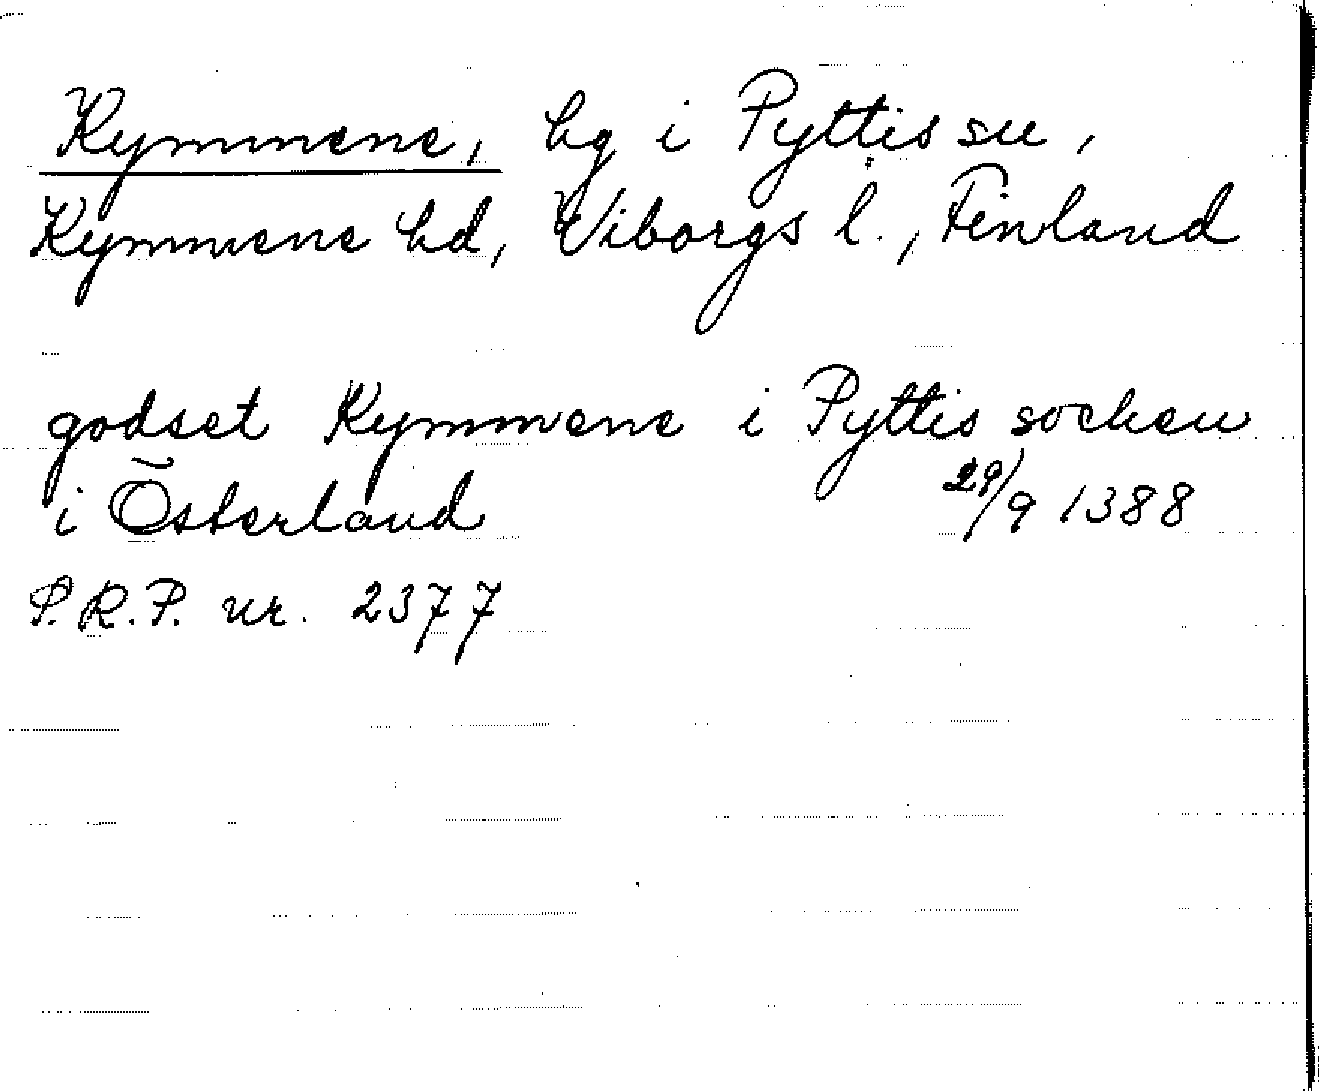 Kymmene, by i Pyttis sn,
Kymmene hd, Viborgs l., Finland
godset Kymmene i Pyttis socken
i Österland 29/9 1388
S.R.P. nr. 2377